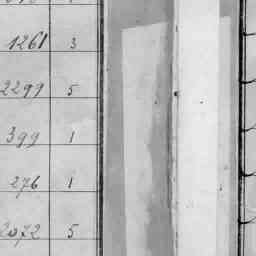 1261 3
2299 5
399 1
276 1
2072 5